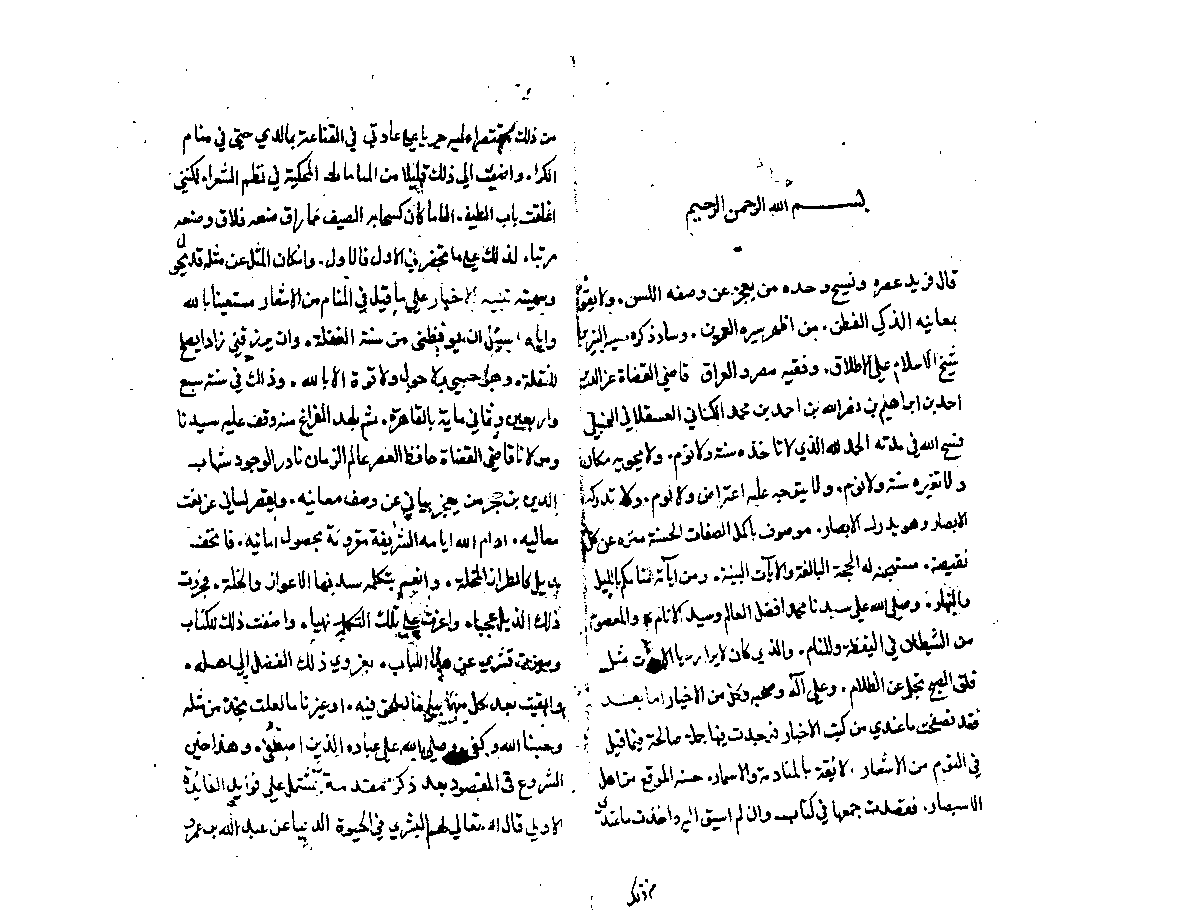 بسم الله الرحمن الرحيم
قال فريد عصره ونسيج وحده من يعجز عن وصفه اللسن، ولا يقوم
بمعانيه الذكي الفطن، من اظهر سيره العمرين، وساد ذكره
شيخ الاسلام علي الاطلاق، وفقيه مصر والعراق قاضي القضاة عز الدين
احمد بن ابراهيم بن نصر الله بن احمد بن محمد الكناني العسقلاني الحنبلي
فسح الله في مدته الحمد لله الذي لا تاخذه سنة ولا نوم، ولا يحويه مكان
ولا تغيره سنة ولا يوم، ولا يتوجه عليه اعتراض ولا لوم، ولا تدركه
الابصار وهو يدرك الابصار، موصوف باكمل الصفات الحسنة منزه عن كل
نقيصة، مستهجنه له الحجة البالغة والآيات البينة، ومن آياته منامكم بالليل
والنهار، وصلي الله علي سيدنا محمد افضل العالم وسيد الانام، والمعصوم
من الشيطان في اليقظة والمنام، والذي كان لا يرا رءيا الا جات مثل
فلق الصبح تجلي عن الظلام، وعلي آله وصحبه وكل من الاخيار اما بعد
فقد تصفحت ما عندي من كتب الاخبار فوجدت فيها جملة صالحة فيما قيل
في النوم من الاشعار، لايقة بالمنادمة والاسمار، حسنة الموقع من اهل
الاستبصار، فقصدت جمعها في كتاب، وان لم اسبق اليه واخذت ما عندي
من ذلك
من ذلك مقتصرا عليه جريا علي عادتي في القناعة بما لدي حتي في منام
الكرا، واضفت الي ذلك قليلا من المنامات المحكية في نظم الشعراء لكنني
اغلقت باب الطيف، الا ما كان كسحابة الصيف مما راق منعه فلاق وضعه
مرتبا، لذلك علي ما تحضرني الاول فالاول، وان كان المثل عن مثله قد يحول
وسميته تنبيه الاخيار علي ما قيل في المنام من الاشعار مستعينا بالله
واياه اسيل ان يوقظني من سنة الغفلة، وان يرزقني زادا يصلح
للنقلة، وهو حسبي ولا حول ولا قوة الا بالله، وذلك في سنة سبع
واربعين وثماني ماية بالقاهرة، ثم بعد الفراغ منه وقف عليه سيدنا
ومولانا قاضي القضاة حافظ العصر عالم الزمان نادر الوجود شهاب
الدين بن حجر من يعجز بياني عن وصف معانيه، ويقصر لساني عن نعت
معاليه، ادام الله ايامه الشريفة مقرونة بحصول امانيه، فاتحف
بذيل كالطراز للحلة، وانعم بتكملة سد بها الاعواز والخلة، فجررت
ذلك الذيل عجبا، واغرت علي تلك التكملة نهبا، واضفت ذلك للكتاب
وميزت قشري عن هذا اللباب، بعزوي ذلك الفضل الي اهله،
وابقيت بعد كل منها بياضا لما يلحق فيه، او عيزنا ما لعلت نجده من مثله
وحسبنا الله وكفي وصلي الله علي عباده الذين اصطفي، وهذا حين
الشروع في المقصود بعد ذكر مقدمة تشتمل علي فوايد الفايدة
الاولي قال الله تعالي لهم البشري في الحيوة الدنيا عن عبد الله بن عمرو